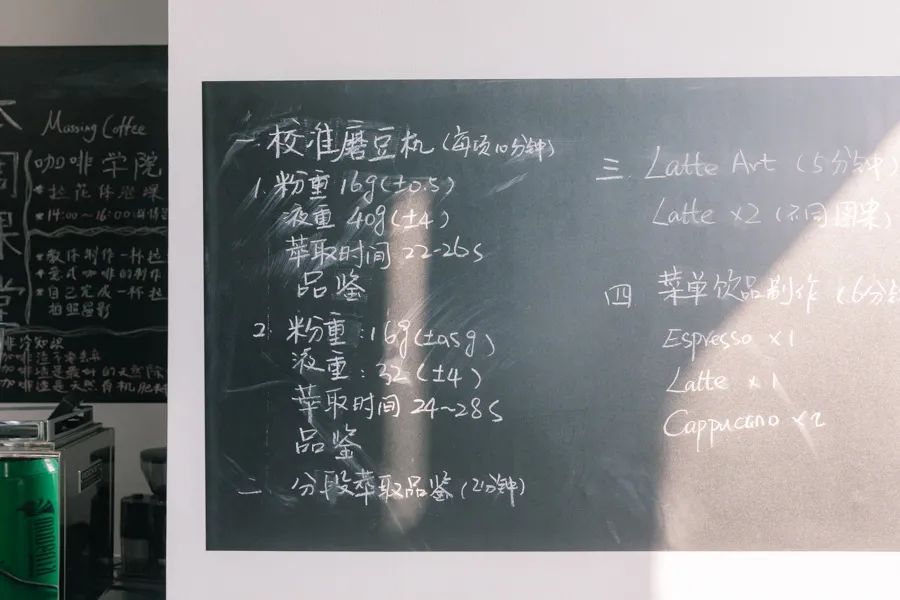 Massing Coffee
咖啡学院
*拉花体验课
*14:00~16:00
*教你制作一杯拉
*意式咖啡的制作
*自己完成一杯拉
拍照留影
一. 校准磨豆机(每项10分钟)
1. 粉重 16g(±0.5)
液重 40g(±4)
萃取时间 22-26s
品鉴
2. 粉重:16g(±0.5g)
液重:32(±4)
萃取时间 24~28s
品鉴
二 分段萃取品鉴(2分钟)
三. Latte Art (5分钟)
Latte ×2 (不同图案)
四 菜单饮品制作 (6分钟
Espresso ×1
Latte ×1
Cappuccino ×2